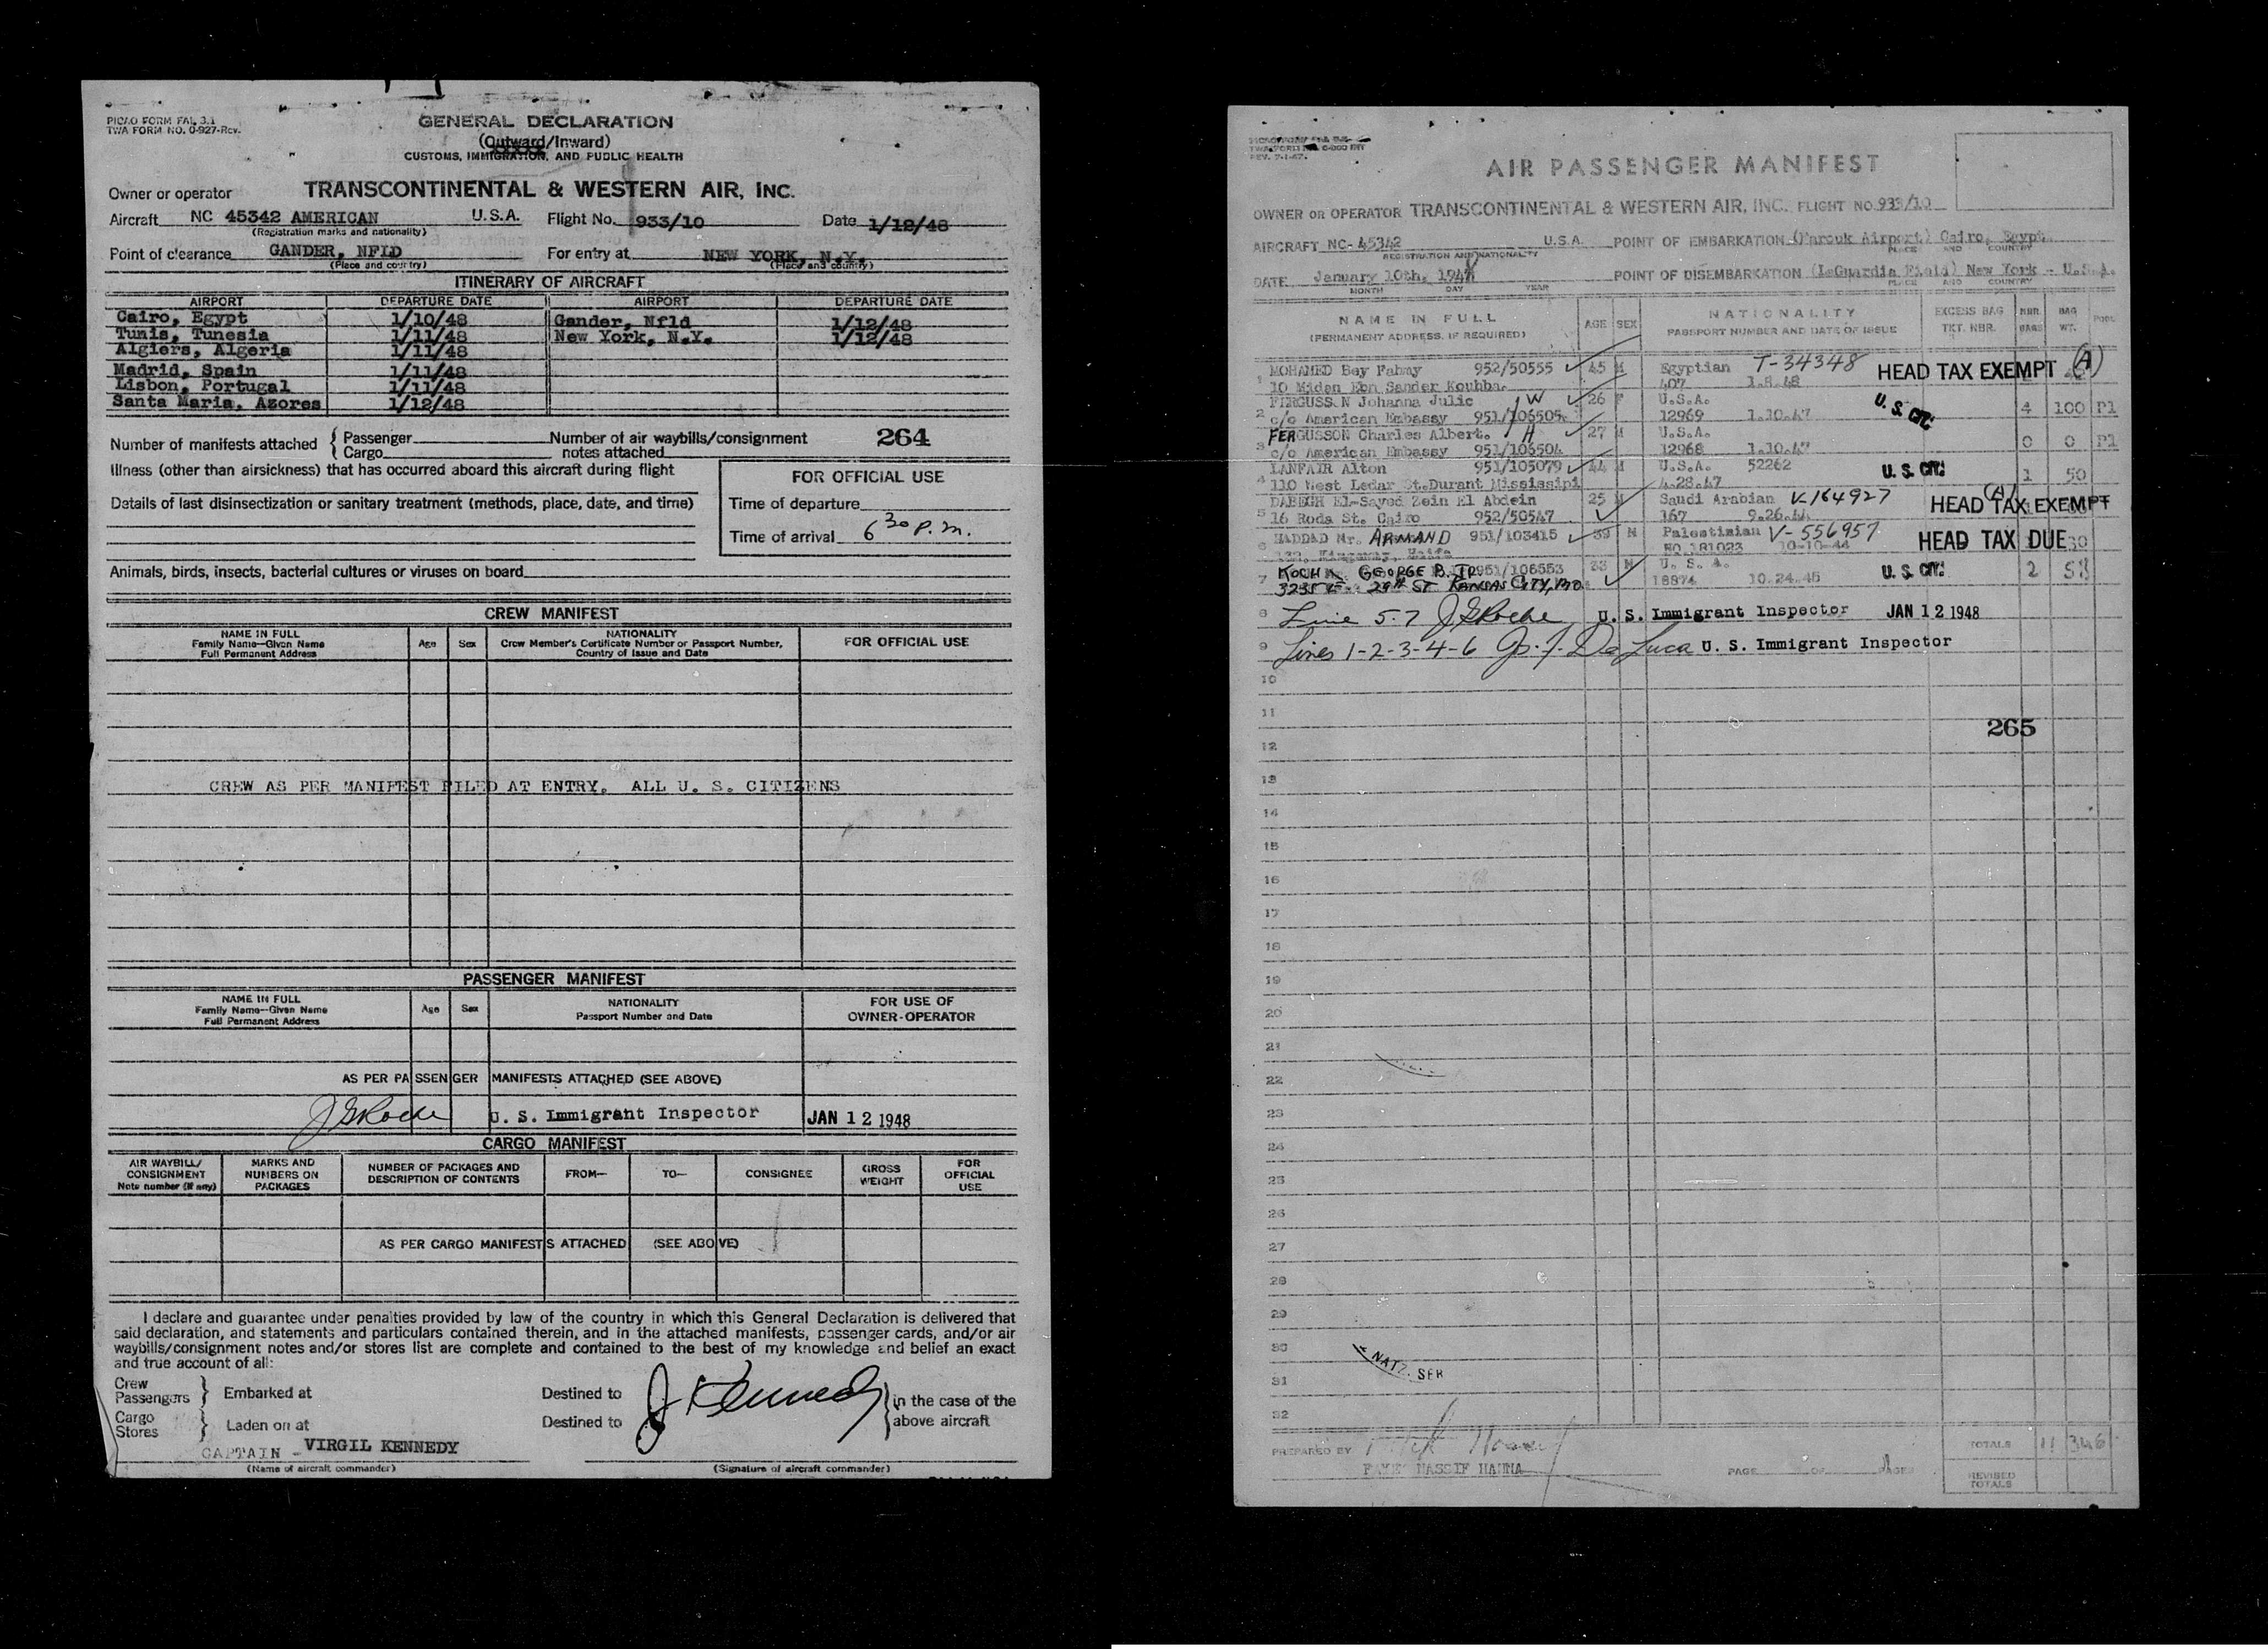 PICAO FORM FAL 3.1
TWA FORM NO. 0-927-Rev.
GENERAL DECLARATION
(Outward/Inward)
CUSTOMS, IMMIGRATION, AND PUBLIC HEALTH
Owner or operator TRANSCONTINENTAL & WESTERN AIR, INC.
Aircraft NC 45342 AMERICAN U.S.A. Flight No. 933/10 Date 1/12/48
(Registration marks and nationality)
Point of clearance GANDER, NFLD For entry at NEW YORK, N.Y.
(Place and country) (Place and country)
ITINERARY OF AIRCRAFT
AIRPORT DEPARTURE DATE AIRPORT DEPARTURE DATE
Cairo, Egypt 1/10/48 Gander, Nfld 1/12/48
Tunis, Tunesia 1/11/48 New York, N.Y. 1/12/48
Algiers, Algeria 1/11/48
Madrid, Spain 1/11/48
Lisbon, Portugal 1/11/48
Santa Maria, Azores 1/12/48
Number of manifests attached { Passenger Number of air waybills/consignment 264
Cargo notes attached
Illness (other than airsickness) that has occurred aboard this aircraft during flight
FOR OFFICIAL USE
Details of last disinsectization or sanitary treatment (methods, place, date, and time)
Time of departure
Time of arrival 6 30 P.m.
Animals, birds, insects, bacterial cultures or viruses on board
CREW MANIFEST
NAME IN FULL
Family Name--Given Name
Full Permanent Address
Age Sex
NATIONALITY
Crew Member's Certificate Number or Passport Number,
Country of Issue and Date
FOR OFFICIAL USE
CREW AS PER MANIFEST FILED AT ENTRY. ALL U. S. CITIZENS
PASSENGER MANIFEST
NAME IN FULL
Family Name--Given Name
Full Permanent Address
Age Sex
NATIONALITY
Passport Number and Date
FOR USE OF
OWNER-OPERATOR
AS PER PASSENGER MANIFESTS ATTACHED (SEE ABOVE)
J G Roche U. S. Immigrant Inspector JAN 12 1948
CARGO MANIFEST
AIR WAYBILL/
CONSIGNMENT
Note number (if any)
MARKS AND
NUMBERS ON
PACKAGES
NUMBER OF PACKAGES AND
DESCRIPTION OF CONTENTS
FROM—
TO—
CONSIGNEE
GROSS
WEIGHT
FOR
OFFICIAL
USE
AS PER CARGO MANIFESTS ATTACHED (SEE ABOVE)
I declare and guarantee under penalties provided by law of the country in which this General Declaration is delivered that
said declaration, and statements and particulars contained therein, and in the attached manifests, passenger cards, and/or air
waybills/consignment notes and/or stores list are complete and contained to the best of my knowledge and belief an exact
and true account of all:
Crew
Passengers } Embarked at Destined to J Kennedy } in the case of the
Cargo
Stores } Laden on at Destined to above aircraft
CAPTAIN - VIRGIL KENNEDY
(Name of aircraft commander) (Signature of aircraft commander)
REV. 7-1-47.
AIR PASSENGER MANIFEST
OWNER OR OPERATOR TRANSCONTINENTAL & WESTERN AIR, INC. FLIGHT NO 933/10
AIRCRAFT NC- 45342 U.S.A. POINT OF EMBARKATION (Farouk Airport) Cairo, Egypt
REGISTRATION AND NATIONALITY PLACE AND COUNTRY
DATE January 10th, 1948 POINT OF DISEMBARKATION (LaGuardia Field) New York - U.S.A.
MONTH DAY YEAR PLACE AND COUNTRY
NAME IN FULL
(PERMANENT ADDRESS, IF REQUIRED)
AGE SEX
NATIONALITY
PASSPORT NUMBER AND DATE OF ISSUE
EXCESS BAG
TKT. NBR.
NBR.
BAGS
BAG
WT.
MOHAMED Bey Fahmy 952/50555 45 M Egyptian T-34348 HEAD TAX EXEMPT (A)
1 10 Midan Ebn Sander Koubba. 407 1.8.48
FERGUSSON Johanna Julic W 26 F U.S.A. U.S. CIT.
2 c/o American Embassy 951/106505 12969 1.10.47 4 100 P1
FERGUSSON Charles Albert. H 27 M U.S.A.
3 c/o American Embassy 951/106504 12968 1.10.47 0 0 P1
LANFAIR Alton 951/105079 44 M U.S.A. 52262 U.S. CIT.
4 110 West Ledar St. Durant Missisipi 4.28.47 1 50
DABEGH El-Sayed Zein El Abdein 25 M Saudi Arabian V-164927 HEAD (A) TAX EXEMPT
5 16 Roda St. Cairo 952/50547 167 9.26.44
6 HADDAD Mr. ARMAND 951/103415 39 M Palestinian V-556957 HEAD TAX DUE 30
132, Kingsway, Haifa NO 181023 10-10-44
7 KOCH GEORGE B. JR. 951/106553 33 M U. S. A. U.S. CIT. 2 58
3235 E. 29th ST KANSAS CITY, MO. 18874 10.24.45
8 Line 5-7 J G Roche U. S. Immigrant Inspector JAN 12 1948
9 Lines 1-2-3-4-6 Jos. J. De Luca U. S. Immigrant Inspector
10
11
265
12
13
14
15
16
17
18
19
20
21
22
23
24
25
26
27
28
29
30
NATZ. SER
31
32
PREPARED BY
FAYEZ NASSIF HANNA PAGE OF PAGES
TOTALS 11 346
REVISED
TOTALS